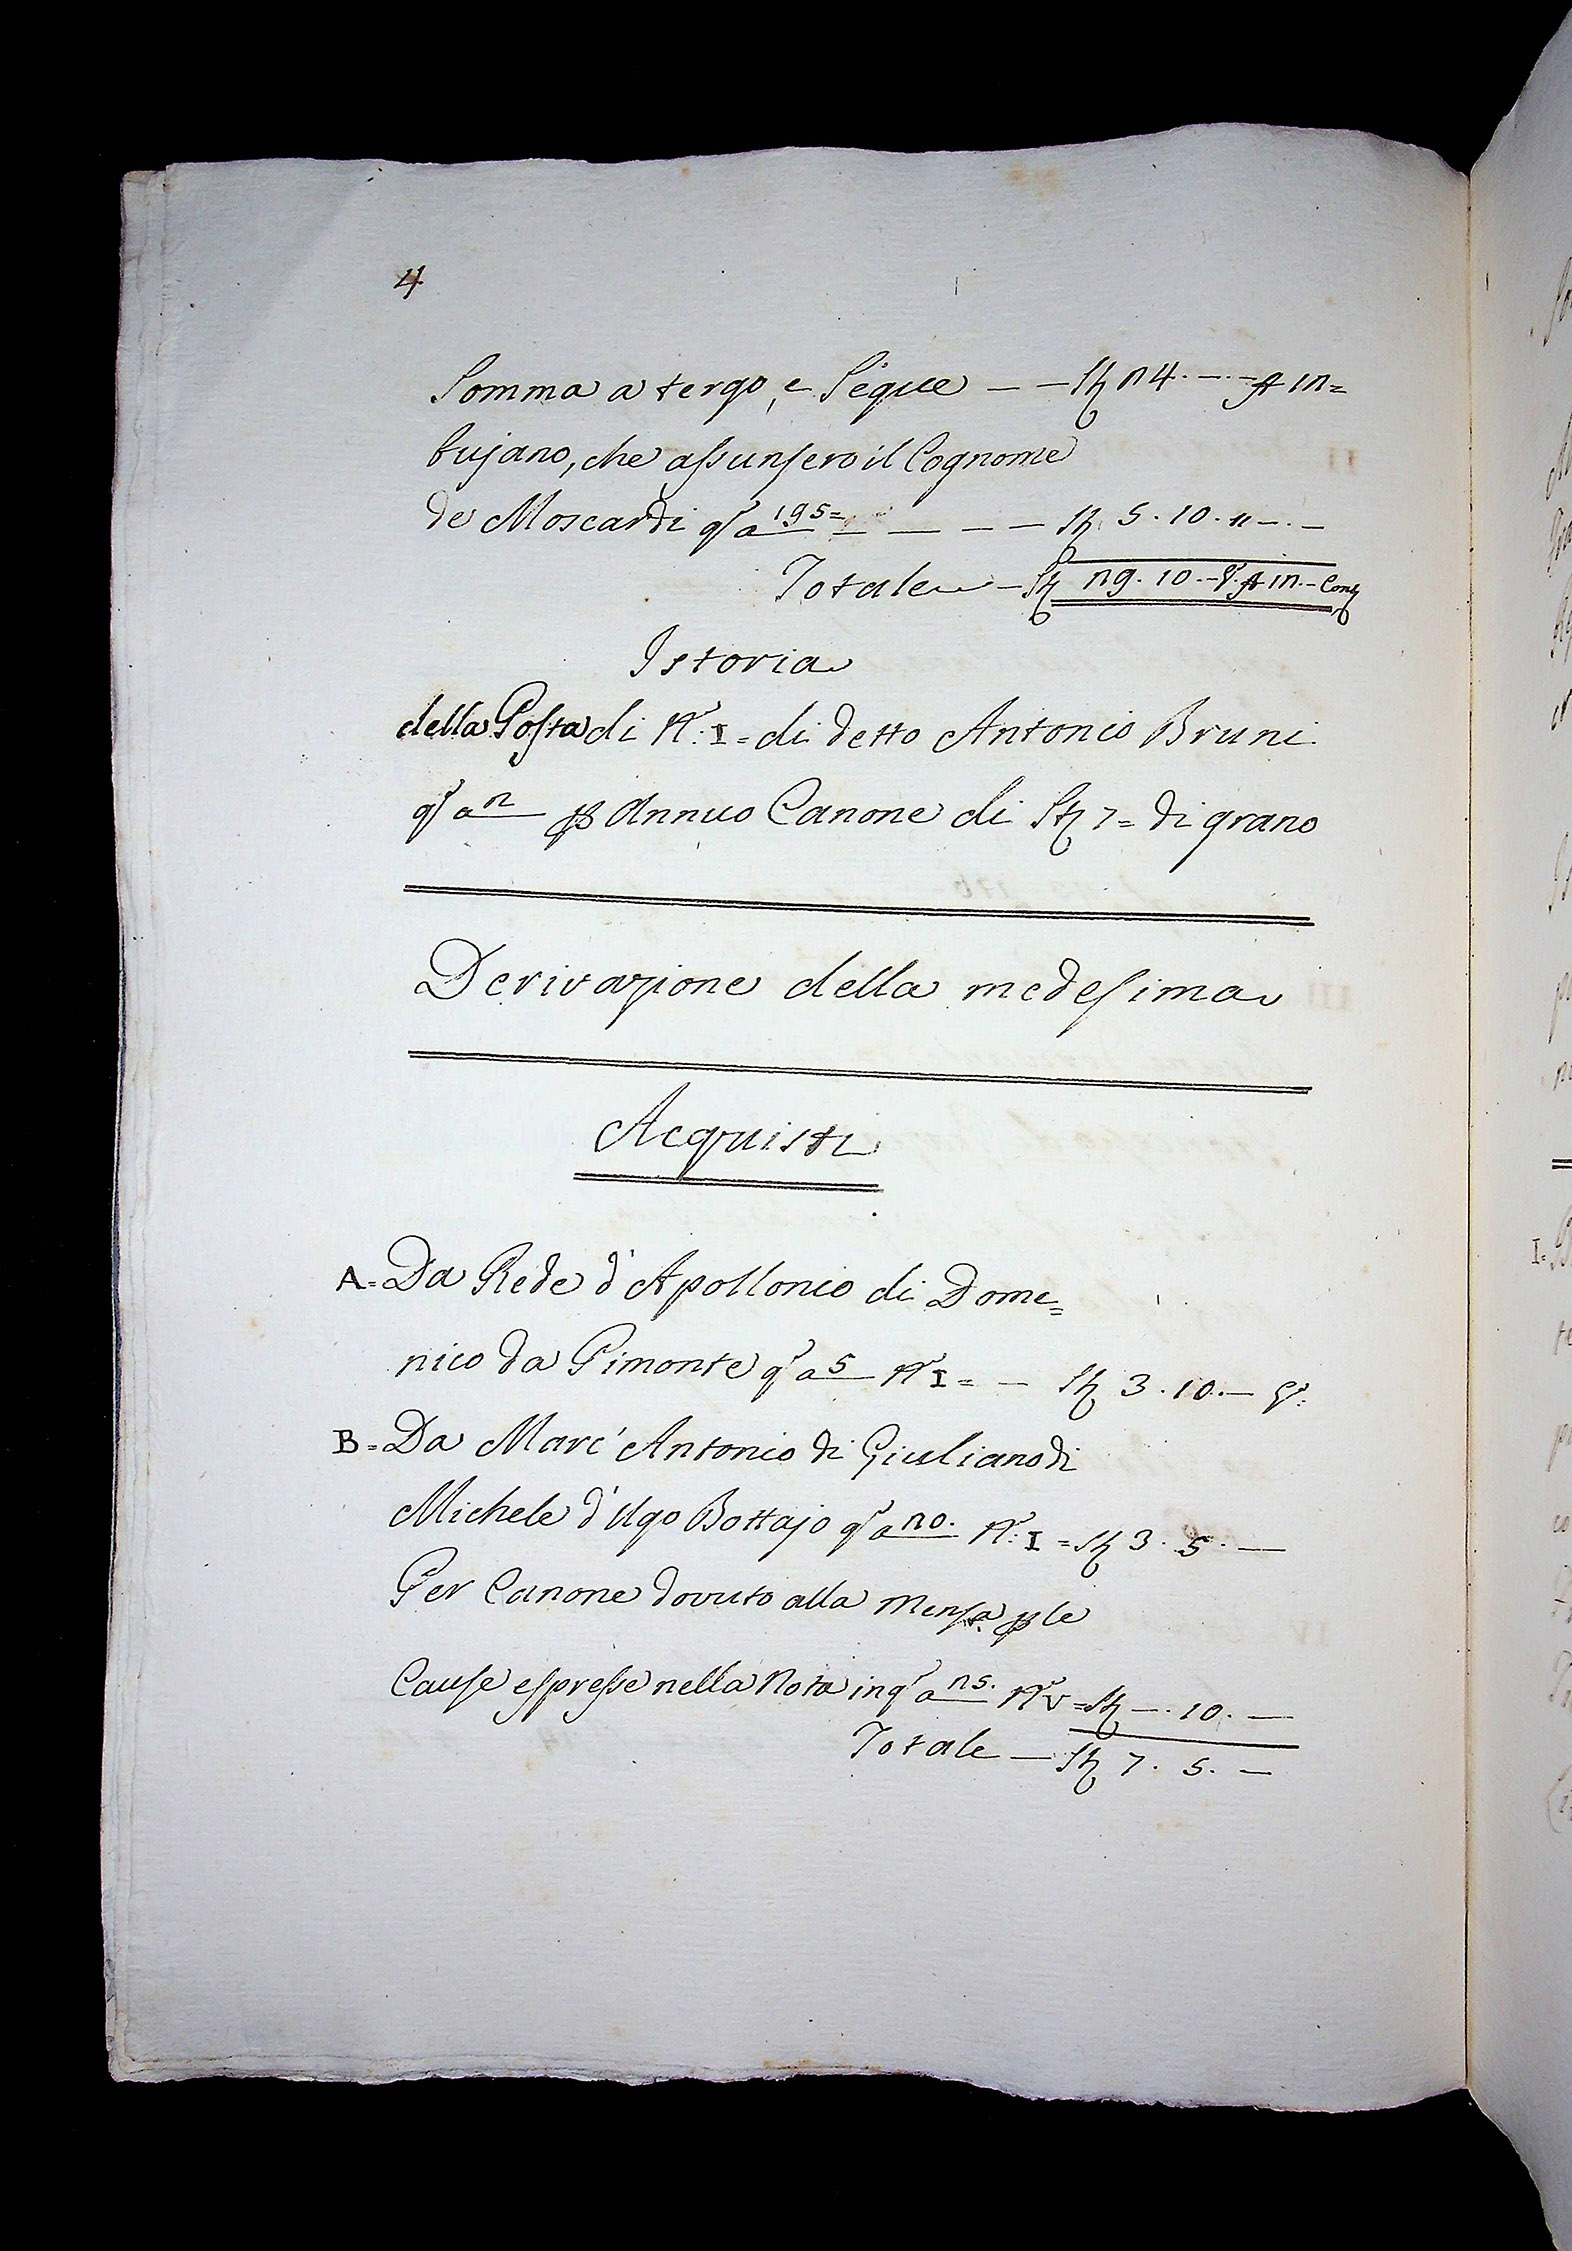 4
Somma a tergo, e Segue — — St; 24. — . — A 12=
bujano, che assunsero il Cognome
de Moscardi qᵃ a 195= — — — — St; 5. 10. 11 — . —
Totale — St; 29. 10. — A 12. —
Istoria
della Posta di N.º I= di detto Antonio Bruni
qᵃ a 2 p Annuo Canone di St; 7= di grano
Derivazione della medesima
Acquisti
A= Da Rede d'Apollonio di Dome=
nico da Pimonte qᵃ a 5 N.º I= — St; 3. 10. —
B= Da Marc'Antonio di Giuliano di
Michele d'Ugo Bottajo qᵃ a 20. N.º I= St; 3. 5. —
Per Canone dovuto alla Mensa p le
Cause espresse nella Nota in qᵃ a 25. N.º V= St; — . 10. —
Totale — St; 7. 5. —
I=